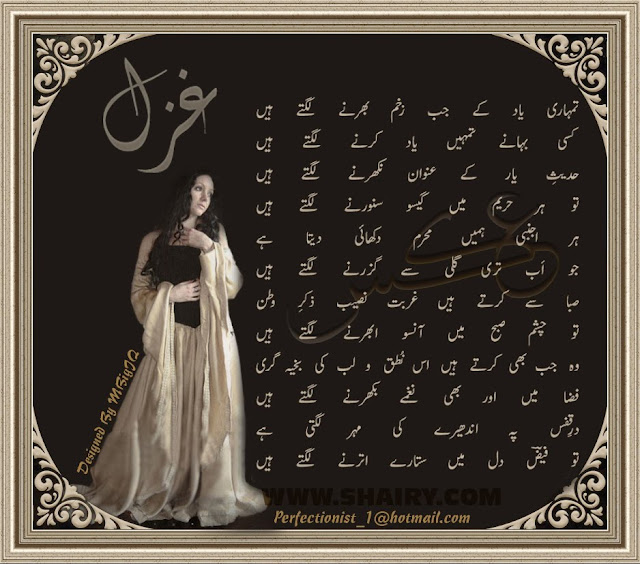 غزل
تمہاری یاد کے جب زخم بھرنے لگتے ہیں
کسی بہانے تمہیں یاد کرنے لگتے ہیں
حدیثِ یار کے عنوان نکھرنے لگتے ہیں
تو ہر حریم میں گیسو سنورنے لگتے ہیں
ہر اجنبی ہمیں محرم دکھائی دیتا ہے
جو اَب تری گلی سے گزرنے لگتے ہیں
صبا سے کرتے ہیں غربت نصیب ذکرِ وطن
تو چشم صبح میں آنسو ابھرنے لگتے ہیں
وہ جب بھی کرتے ہیں اس نُطق و لب کی بخیہ گری
فضا میں اور بھی نغمے بکھرنے لگتے ہیں
درِقفس پہ اندھیرے کی مہر لگتی ہے
تو فیضؔ دل میں ستارے اترنے لگتے ہیں
عکس
Designed By MSiyIQ
WWW.SHAIRY.COM
Perfectionist_1@hotmail.com